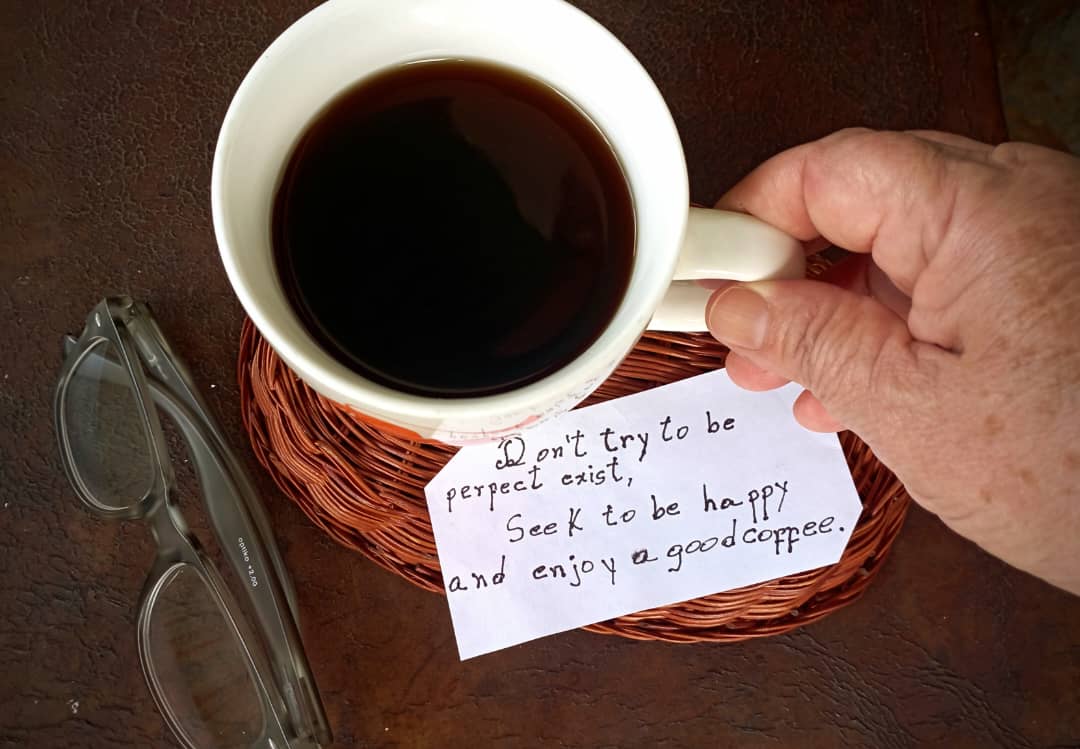 Don't try to be
perfect exist,
Seek to be happy
and enjoy a good coffee.
optiko +2.00